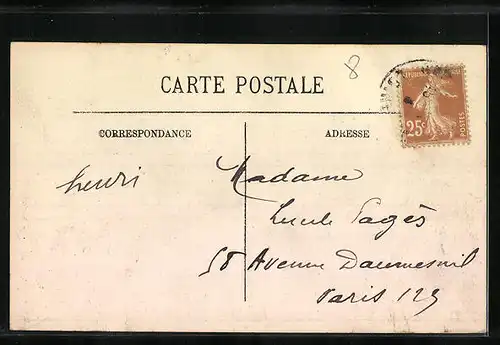 8
CARTE POSTALE
25c POSTES
CORRESPONDANCE
ADRESSE
henri
Madame
Lucile Pagès
58 Avenue Daumesnil
Paris 12e